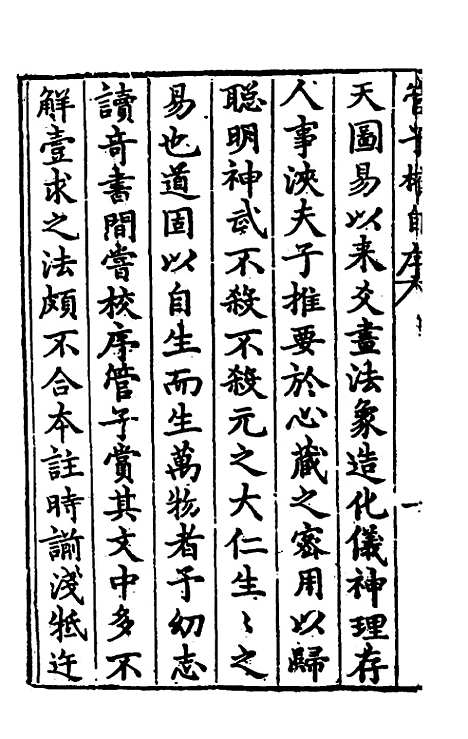 天圖易以来爻畫法象造化儀神理存
人事浹夫子推要於心藏之宻用以歸
聡明神武不殺不殺元之大仁生〻之
易也道固以自生而生萬物者予㓜志
讀竒書間嘗校序管子賞其文中多不
解壹求之法頗不合本註時謭淺牴迕
管子榷自序